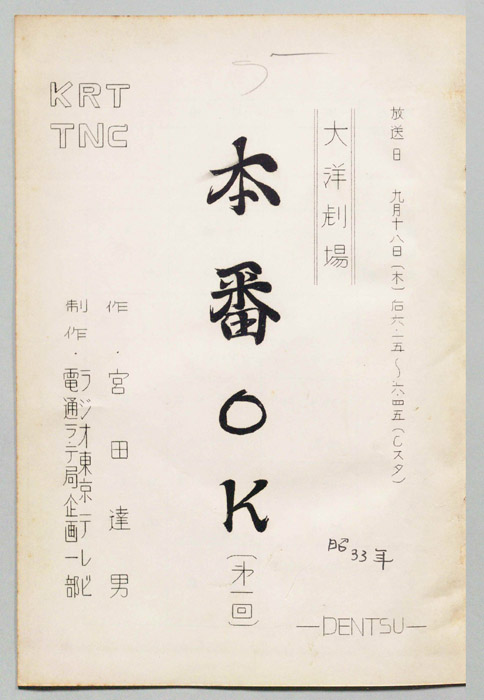 放送日 九月十八日(木)后六・一五〜六・四五(Cスタ)
大洋劇場
本番OK(第一回)
KRT
TNC
作・宮田達男
制作・ラジオ東京テレビ
電通ラ・テ局企画一部
昭33年
—DENTSU—